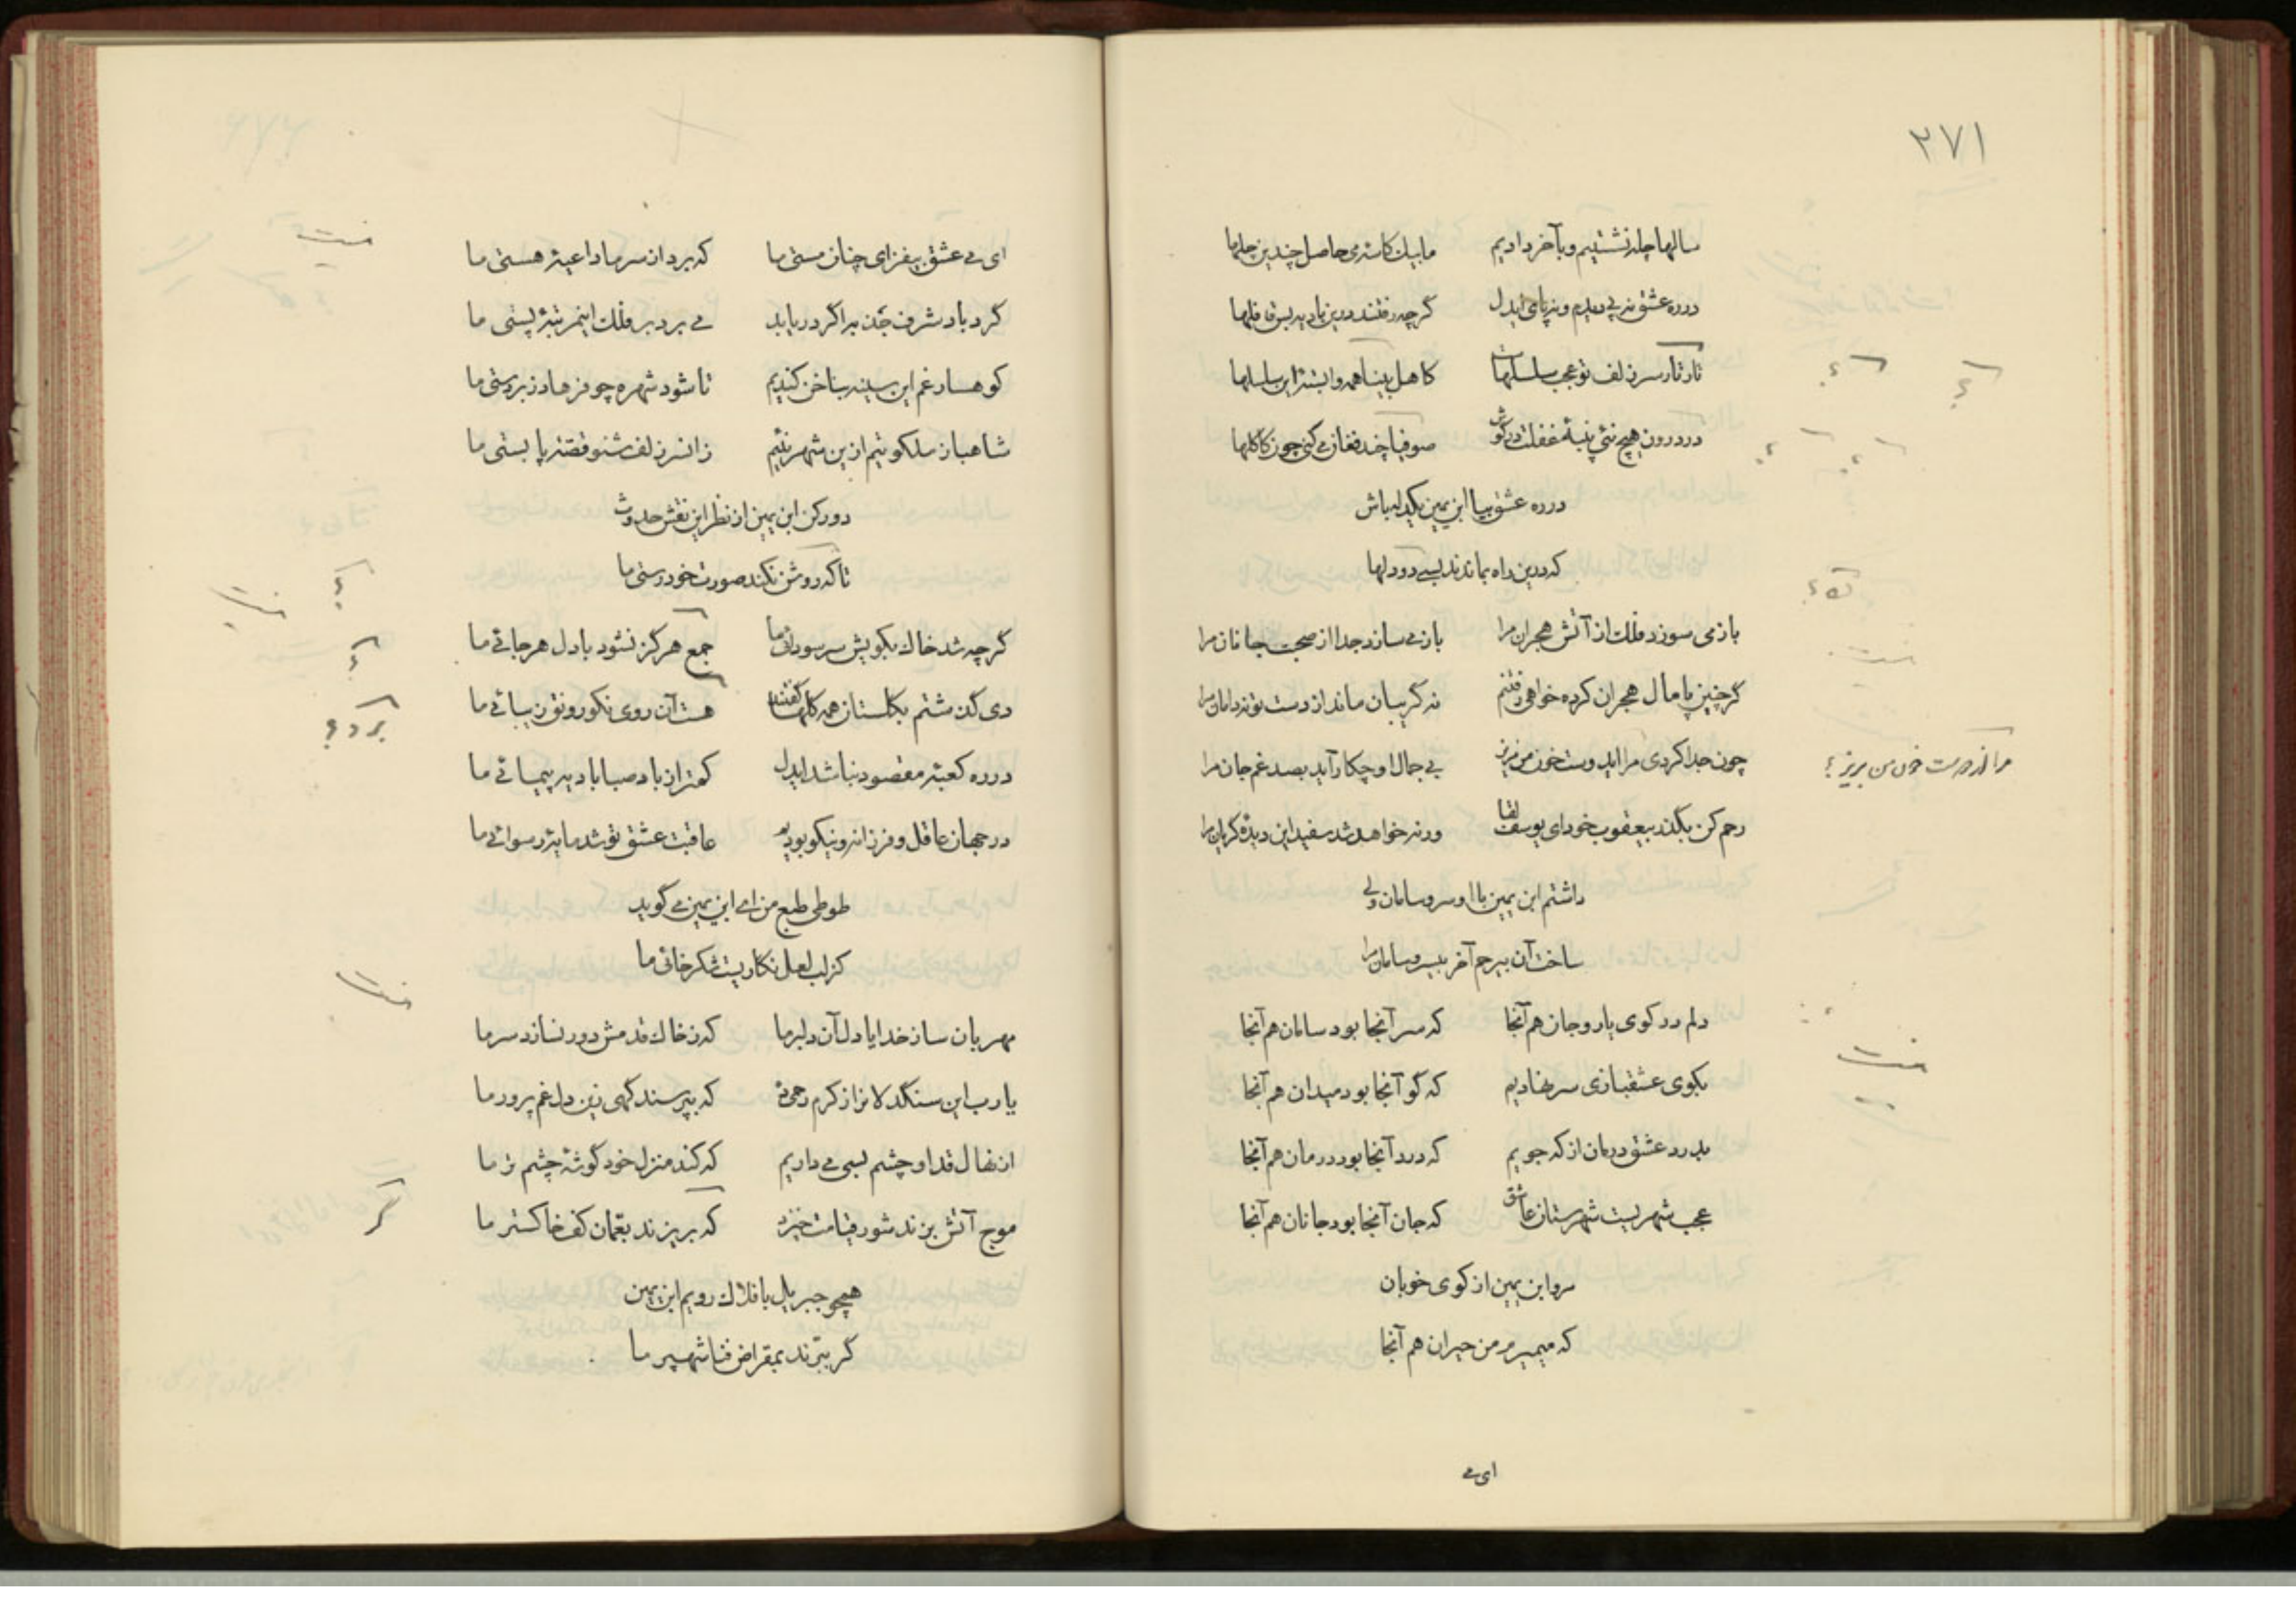 ۲۷۱
سالها چله نشستیم و بآخر دادیم مابیک کاسه می حاصل چندین چلها
درره عشق نه پی دیدم و نه پای ایدل گرچه رفتند درین بادیه بس قافلها
تار تار سر زلف تو عجب سلسلهاست کاهل بینا همه وابسته این سلسلها
در درون هیچ نئی پنبهٔ غفلت در گوش صوفیا چند فغان می کنی چون کاکلها
درره عشق بیا ابن یمین یکدله باش
که درین راه بماندند بسی دودلها
بازمی سوزد فلک از آتش هجران مرا باز می سازد جدا از صحبت جانان مرا
گرچنین پامال هجران کرده خواهی رفتنم نه گریبان ماند از دست تو نه دامان مرا
چون جدا کردی مرا ایدوست خون من بریز بی جمال او چکار آید بصد غم جان مرا
مرا از دوست خون من بریز ؟
رحم کن بگذر بیعقوب خود ای یوسف لقا ورنه خواهد شد سفید این دیدهٔ گریان مرا
داشتم ابن یمین با او سر و سامان ولی
ساخت آن بیرحم آخر بیسر و سامان مرا
دلم در کوی یار و جان هم آنجا که سر آنجا بود سامان هم آنجا
بکوی عشقبازی سر نهادیم که گو آنجا بود میدان هم آنجا
بدرد عشق درمان از که جویم که درد آنجا بود درمان هم آنجا
عجب شهریست شهرستان عاشق که جان آنجا بود جانان هم آنجا
مرو ابن یمین از کوی خوبان
که میمیرم من حیران هم آنجا
ای می
ای می عشق بیفزای چنان مستی ما که برد از سر ما داعیهٔ هستی ما
گرد باد شرف جذبه اگر دریابد می برد بر فلک این مرتبهٔ پستی ما
کوهسار غم این سینه بناخن کندیم تا شود شهره چو فرهاد زبردستی ما
شاهباز ملکوتیم ازین شهر نئیم زان سر زلف شنو قصه پا بستی ما
دورکن ابن یمین از نظر این نقش حدوث
تا که روشن نکند صورت خود رستی ما
گرچه شد خاک بکویش سر سودائی ما جمع هرگز نشود با دل هرجائی ما
دی گذشتم بگلستان همه گلها گفتند هست آن روی نکو رونق زیبائی ما
برد ؟
درره کعبهٔ مقصود نباشد ایدل کمتر از باد صبا بادیه پیمائی ما
درجهان عاقل و فرزانه و نیکو بودیم عاقبت عشق تو شد مایهٔ رسوائی ما
طوطی طبع من ای ابن یمین می گوید
کزلب لعل نگاریست شکر خائی ما
مهربان ساز خدایا دل آن دلبر ما که ز خاک قدمش دور نسازد سر ما
یارب این سنگدلانرا ز کرم رحمی ده که بپرسند گهی زین دل غم پرور ما
از نهال قد او چشم بسی می داریم که کند منزل خود گوشهٔ چشم تر ما
موج آتش بزند شور قیامت خیزد که بریزند بعمان کف خاکستر ما
گر
همچو جبریل بافلاک رویم ابن یمین
گر ببرّند بمقراض فنا شهپر ما